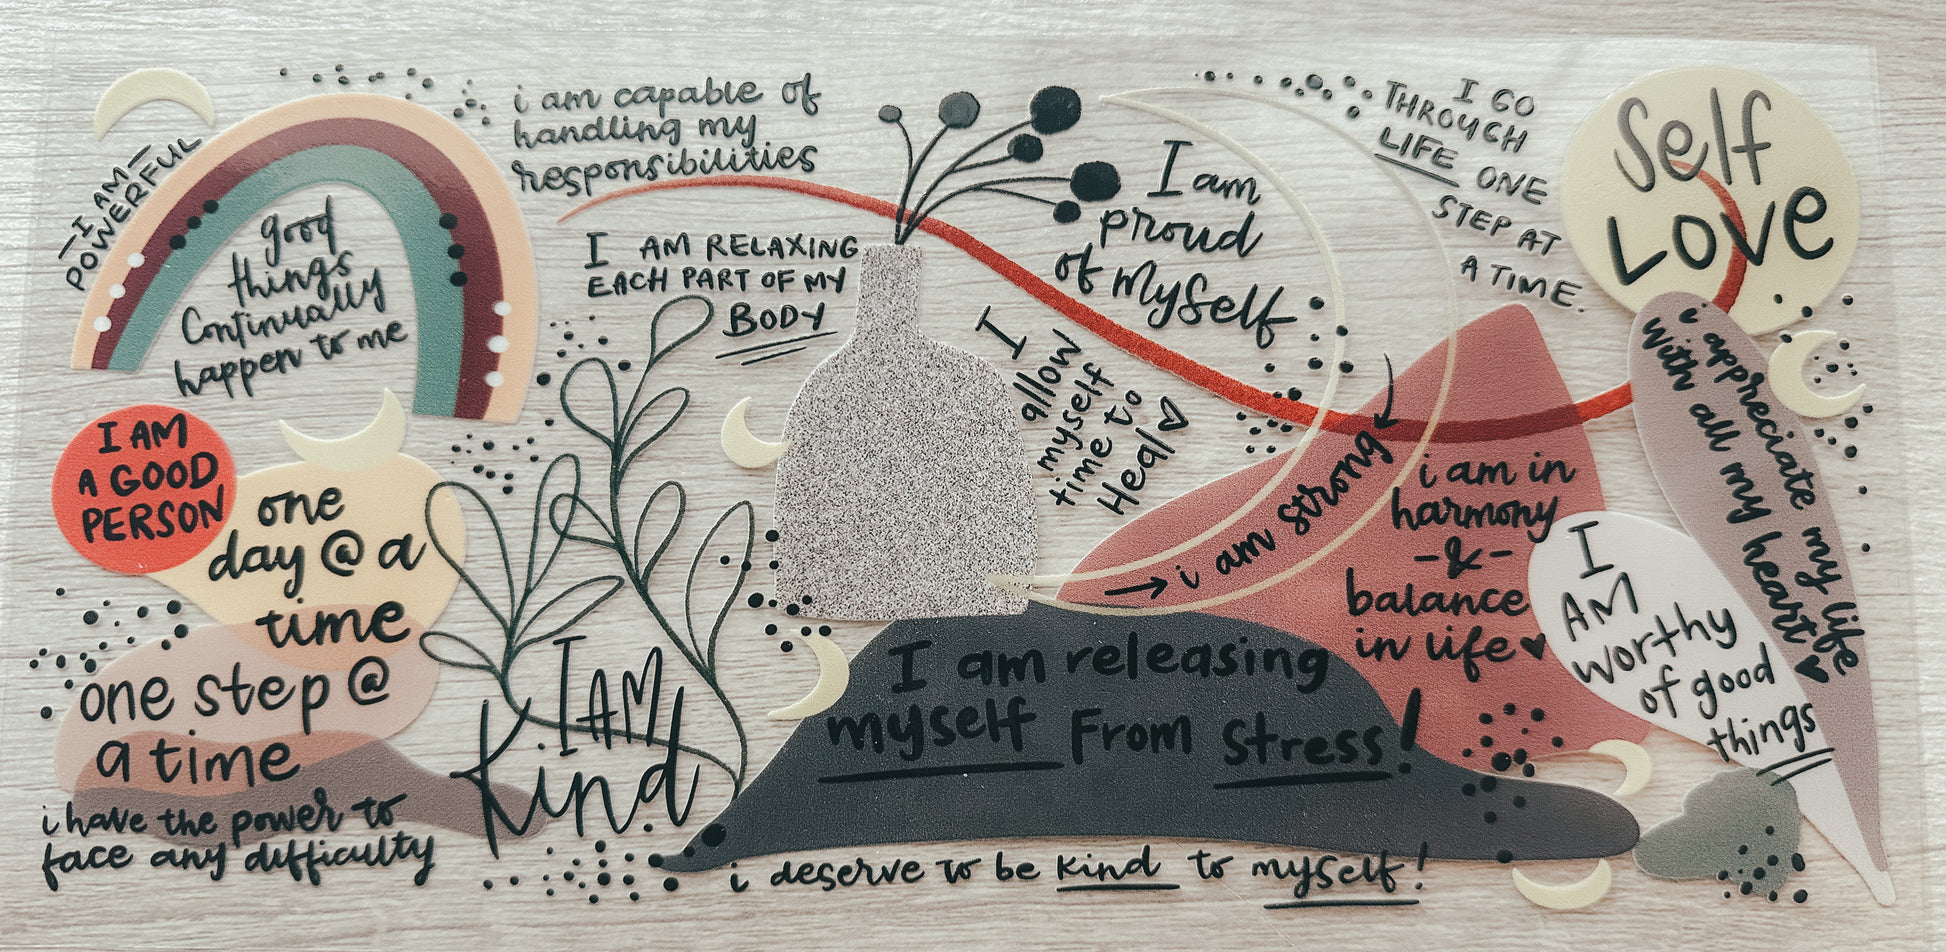 - I AM -
POWERFUL
good
things
Continually
happen to me
i am capable of
handling my
responsibilities
I AM RELAXING
EACH PART OF MY
BODY
I am
proud
of Myself
I GO
THROUGH
LIFE ONE
STEP AT
A TIME.
Self
Love
I
allow
myself
time to
Heal
i am strong
i am in
harmony
-&-
balance
in life
i appreciate my life
with all my heart
I
AM
worthy
of good
things
I AM
A GOOD
PERSON
one
day @ a
time
one step @
a time
i have the power to
face any difficulty
I AM
Kind
I am releasing
myself From Stress!
i deserve to be kind to myself!